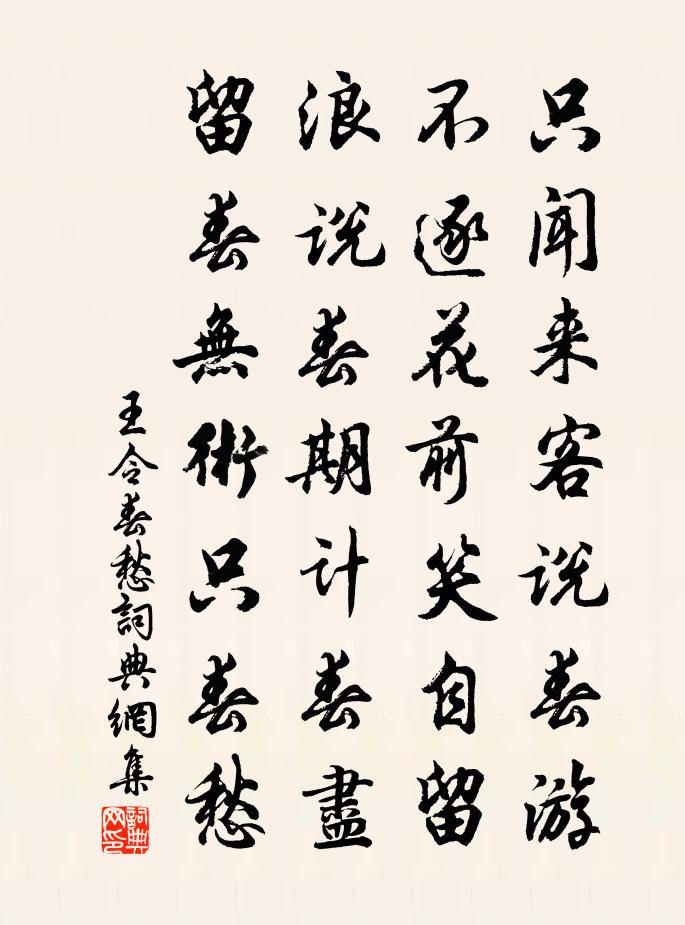 只闻来客说春游
不逐花前笑自留
浪说春期计春尽
留春無術只春愁
王令春愁詞典網集
詞典網印